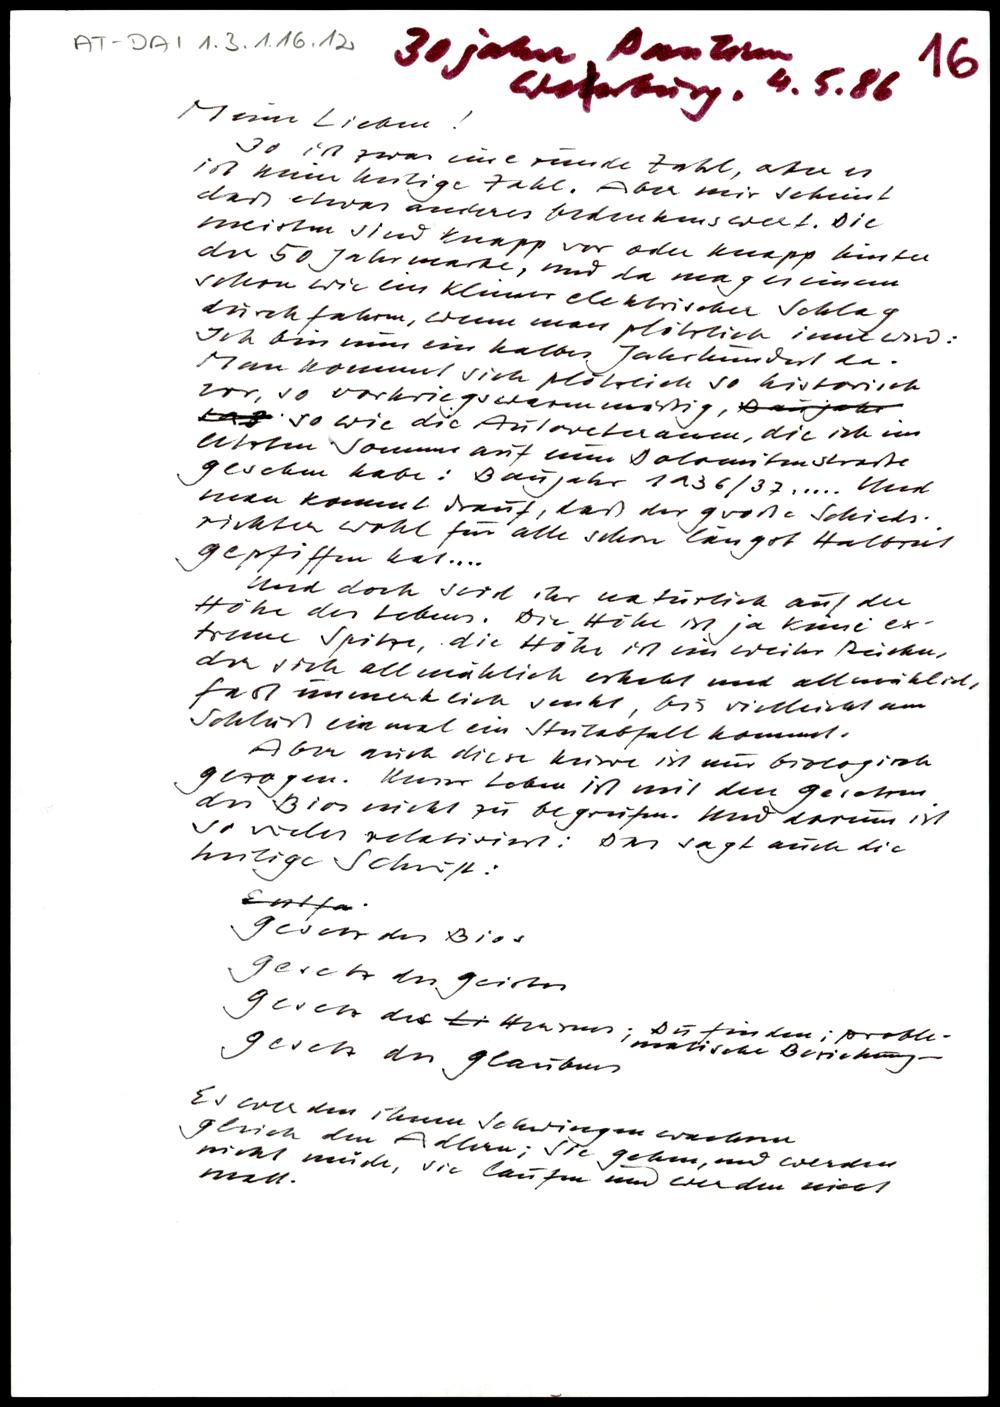 AT-DAI 1.3.1.16.12
30 jahre
16
4.5.86
Meine Lieben!
30 ist zwar eine runde Zahl, aber es
ist keine heilige Zahl. Aber mir scheint
daß etwas anderes bedenkenswert. Die
meisten sind knapp vor oder knapp hinter
der 50 Jahrmarke, und da mag es einem
schon wie ein kleiner elektrischer Schlag
durchfahren, wenn man plötzlich inne wird:
Ich bin nun ein halbes Jahrhundert da.
Man kommt sich plötzlich so historisch
vor, so vorkriegswarenmäßig, Baujahr
so wie die Autoveteranen, die ich im
letzten Sommer auf einer Dolomitenstraße
gesehen habe: Baujahr 1936/37..... Und
man kommt drauf, daß der große Schieds-
richter wohl für alle schon längst Halbzeit
gepfiffen hat....
Und doch seid ihr natürlich auf der
Höhe des Lebens. Die Höhe ist ja keine ex-
treme Spitze, die Höhe ist ein weiter Rücken,
der sich allmählich erhebt und allmählich,
fast unmerklich senkt, bis vielleicht am
Schluß einmal ein Steilabfall kommt.
Aber auch diese Kurve ist nur biologisch
gezogen. Unser Leben ist mit den Gesetzen
des Bios nicht zu begreifen. Und darum ist
so vieles relativiert: Das sagt auch die
heilige Schrift:
Gesetz des Bios
Gesetz des Geistes
Gesetz des Li Herzens; Du finden; proble-
matische Beziehung
Gesetz des Glaubens
Es werden ihnen Schwingen wachsen
gleich den Adlern; sie gehen, und werden
nicht müde, sie laufen und werden nicht
matt.